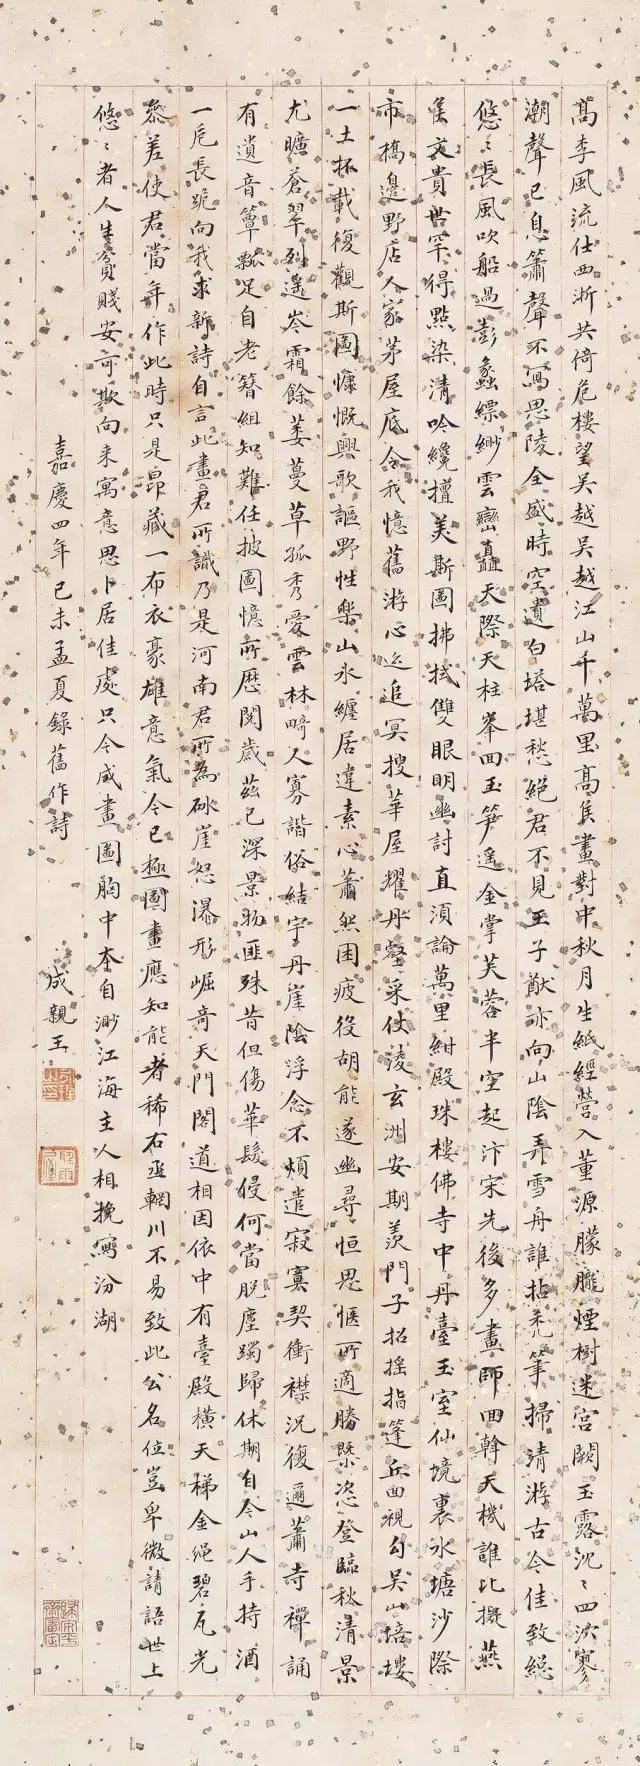 高李風流仕西浙共倚危樓望吳越吳越江山千萬里高侯畫對中秋月生紙經營入董源朦朧煙樹迷宮闕玉露沈〻四泬寥
潮聲已息簫聲不寫思陵全盛時空遺白塔堪愁絕君不見王子猷亦向山陰弄雪舟誰拈禿筆掃清游古今佳致總
悠〻長風吹船過彭蠡縹緲雲巒直天際天柱峯回玉笋遙金掌芙蓉半空起汴宋先後多畫師回斡天機誰比擬燕
侯文貴世罕得點染清吟纔擅美斯圖拂拭雙眼明幽討直須論萬里紺殿珠樓佛寺中丹臺玉室仙境裏水塘沙際
市橋邊野店人家茅屋底令我憶舊游心迄追冥搜華屋耀丹壑采仗淩玄洲安期羨門子招搖指蓬丘回視勾吳山培塿
一土抔載復觀斯圖慷慨興歌謳野性樂山水纏居違素心蕭然困疲役胡能遂幽尋恒思愜所適勝槩恣登臨秋清景
尤曠蒼翠列遙岑霜餘萎蔓草孤秀愛雲林畸人寡諧俗結宇丹崖陰浮念不煩遣寂寞契衝襟況復邇蕭寺禪誦
有遺音簞瓢足自老簪組知難任披圖憶所歷閱歲茲已深景物匪殊昔但傷華髮侵何當脫塵躅歸休期自今山人手持酒
一卮長跪向我求新詩自言此畫君所識乃是河南君所為硃崖怒瀑形崛奇天門閣道相因依中有臺殿橫天梯金繩碧瓦光
參差使君當年作此時只是昂藏一布衣豪雄意氣今已極圖畫應知能者稀右丞輞川不易致此公名位豈卑微請語世上
悠〻者人生貧賤安可欺向来寓意思卜居佳處只今成畫圖胸中本自渺江海主人相挽寫汾湖
嘉慶四年己未孟夏錄舊作詩 成親王